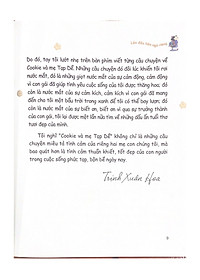 Do đó, tay tôi lướt nhẹ trên bàn phím viết từng câu chuyện về
Cookie và mẹ Tạp Dề. Những câu chuyện đó đôi lúc khiến tôi rơi
nước mắt, đó là những giọt nước mắt của sự cảm động, cảm động
vì con gái đã giúp tình yêu cuộc sống của tôi được thăng hoa; đó
còn là nước mắt của sự cảm kích, cảm kích vì con gái đã mang
đến cho tôi một bầu trời xanh trong để tôi có thể bay lượn; đó
còn là nước mắt của sự biết ơn, biết ơn vì qua sự trưởng thành
của con gái, tôi lại được một lần nữa tìm về những dấu ấn tuổi thơ
tươi đẹp của mình.
Tôi nghĩ "Cookie và mẹ Tạp Dề" không chỉ là những câu
chuyện miêu tả tình cảm của riêng hai mẹ con chúng tôi, mà
bao quát hơn là tình cảm thuần khiết, tốt đẹp của con người
trong cuộc sống phức tạp, bộn bề ngày nay.
Trình Xuân Hoa
9